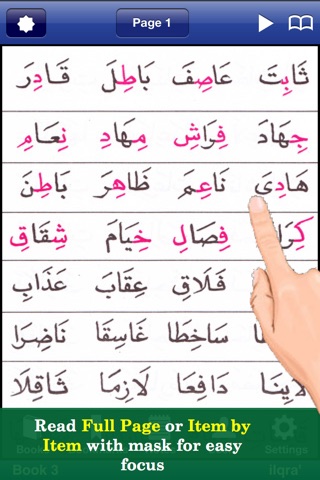 Page 1
ثَابِتَ عَاصِفَ بَاطِلَ قَادِرَ
جِهَادَ فِرَاشِ مِهَادِ نِعَامِ
هَادِيَ نَاعِمَ ظَاهِرَ بَاطِنَ
فِصَالِ خِيَامَ شِقَاقِ
فَلَاقِ عِقَابَ عَذَابِ
سَاخِطَا غَاسِقَا نَاضِرَا
دَافِعَا لَازِمَا ثَاقِلَا
Read Full Page or Item by
Item with mask for easy
focus
Settings
Book 3 iIqra'